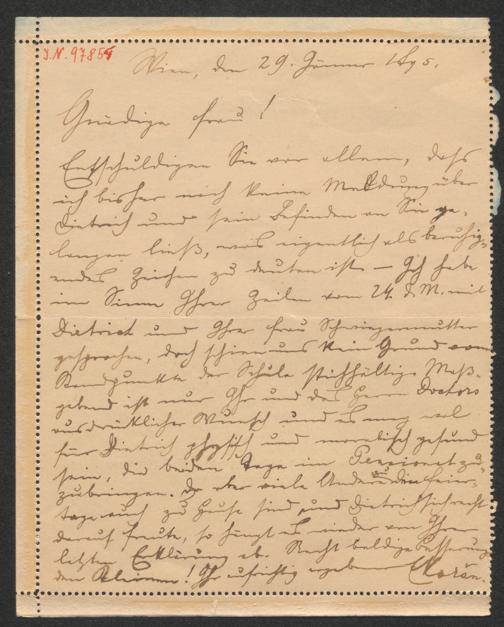 J.N. 97854
Wien, den 29. Jänner 1895.
Gnädige Frau!
Entschuldigen Sie vor allem, daß
ich bisher noch keine Meldung über
Dietrich und sein Befinden an Sie ge-
langen ließ, was eigentlich als beruhig-
endes Zeichen zu deuten ist — Ich habe
im Sinne Ihrer Zeilen vom 24. d. M. mit
Dietrich und Ihrer Frau Schwiegermutter
gesprochen, doch schien uns kein Grund vom
Standpunkte der Schule stichhältig. Maß-
gebend ist nur Ihr und des Herrn Doctors
ausdrücklicher Wunsch und es mag wol
für Dietrich physisch und moralisch gesund
sein, die beiden Tage im Pensionat zu-
zubringen. Da aber viele Andere die Feier-
tage auch zu Hause sind und Dietrich sich recht
darauf freute, so hängt es wieder von Ihrer
letzten Erklärung ab. Recht baldige Besserung
den Kleinen! Ihr aufrichtig ergebener